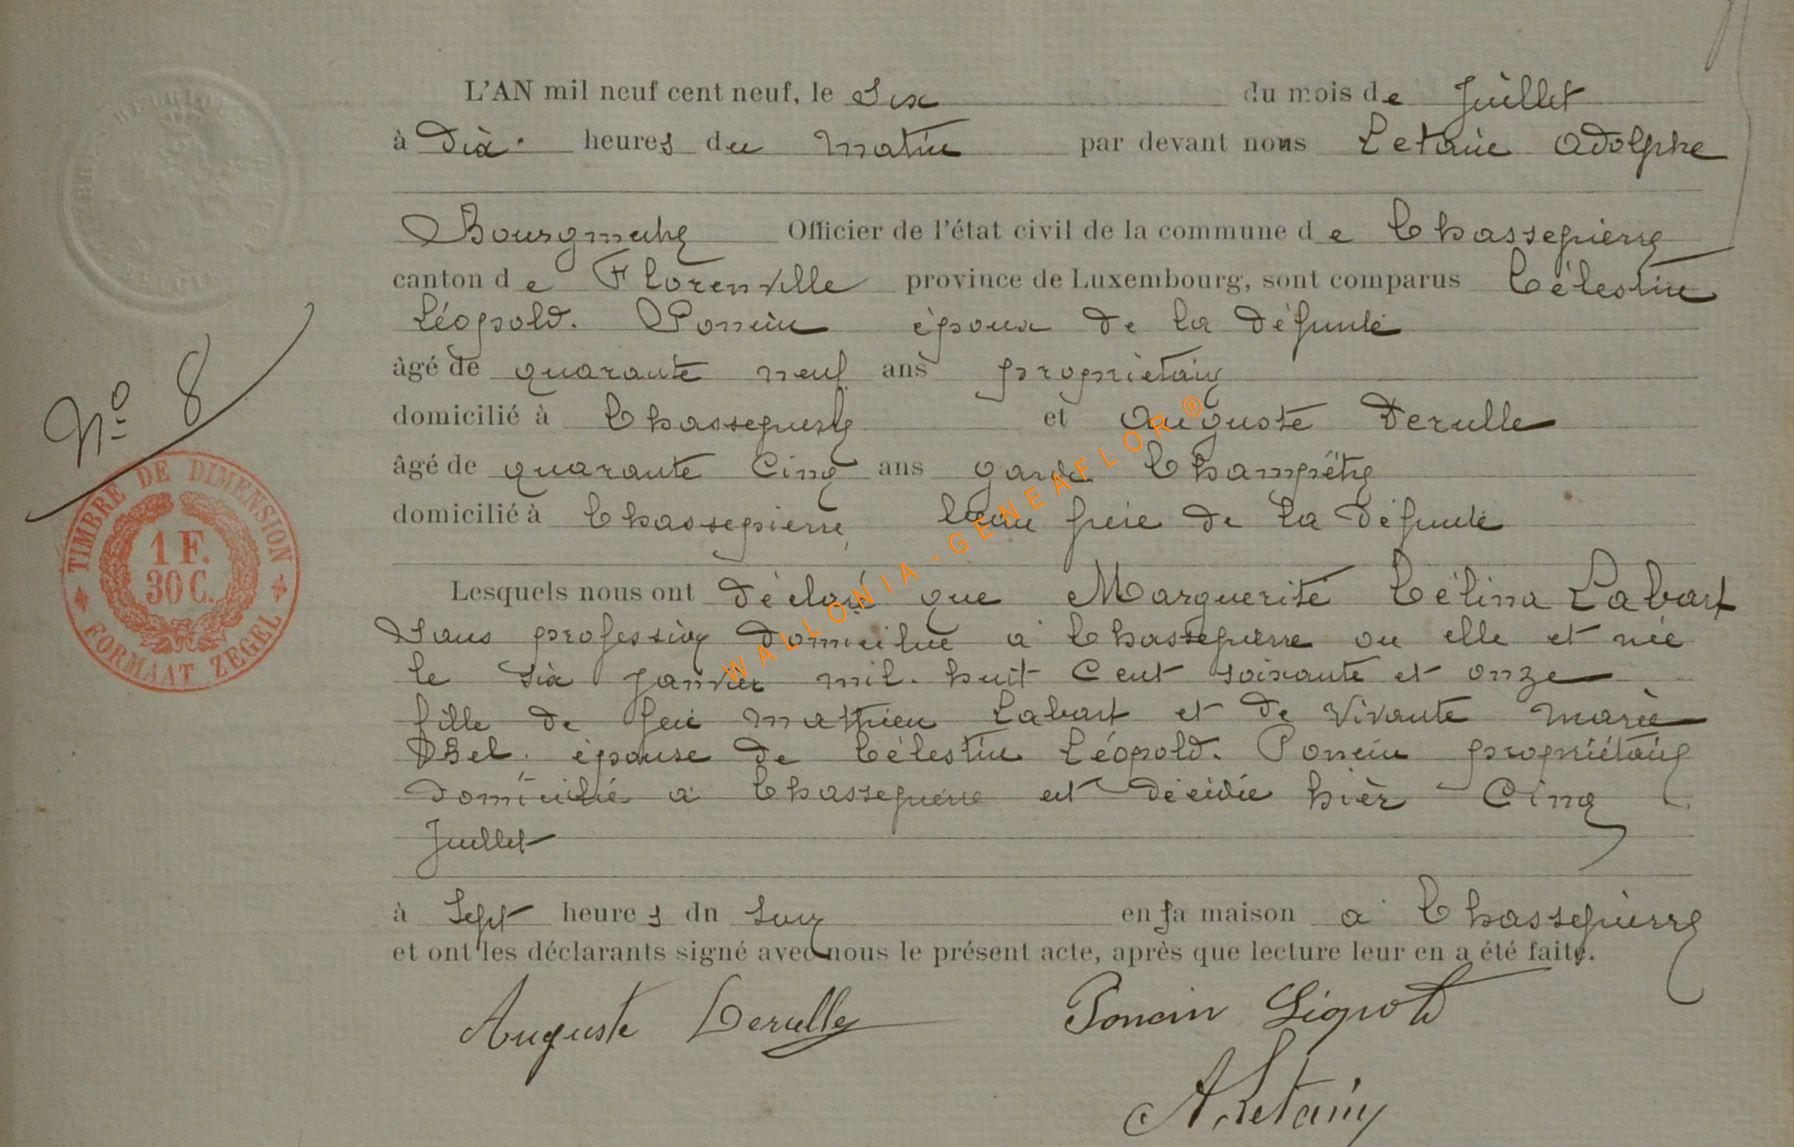 L'AN mil neuf cent neuf, le Six du mois de Juillet
à Dix heures du matin par devant nous Letaire Adolphe
Bourgmestre Officier de l'état civil de la commune de Chassepierre
canton de Florenville province de Luxembourg, sont comparus Célestin
Léopold. Poncin époux de la défunte
âgé de quarante neuf ans propriétaire
domicilié à Chassepierre et Auguste Derulle
âgé de quarante Cinq ans garde Champêtre
domicilié à Chassepierre, beau frère de la défunte
N° 8
TIMBRE DE DIMENSION
1 F.
30 C.
FORMAAT ZEGEL
Lesquels nous ont déclaré que Marguerite Célina Labart
Sans profession domiciliée à Chassepierre ou elle est née
le six janvier mil. huit Cent soixante et onze
fille de feu Mathieu Labart et de vivante Marie
épouse de Célestin Léopold. Poncin propriétaire
domicilié à Chassepierre est décédée hier Cinq
Juillet
à Sept heures du Soir en sa maison à Chassepierre
et ont les déclarants signé avec nous le présent acte, après que lecture leur en a été faite.
Auguste Derulle Poncin Léopold
A. Letaire
WALLONIA-GENEAFLOR®